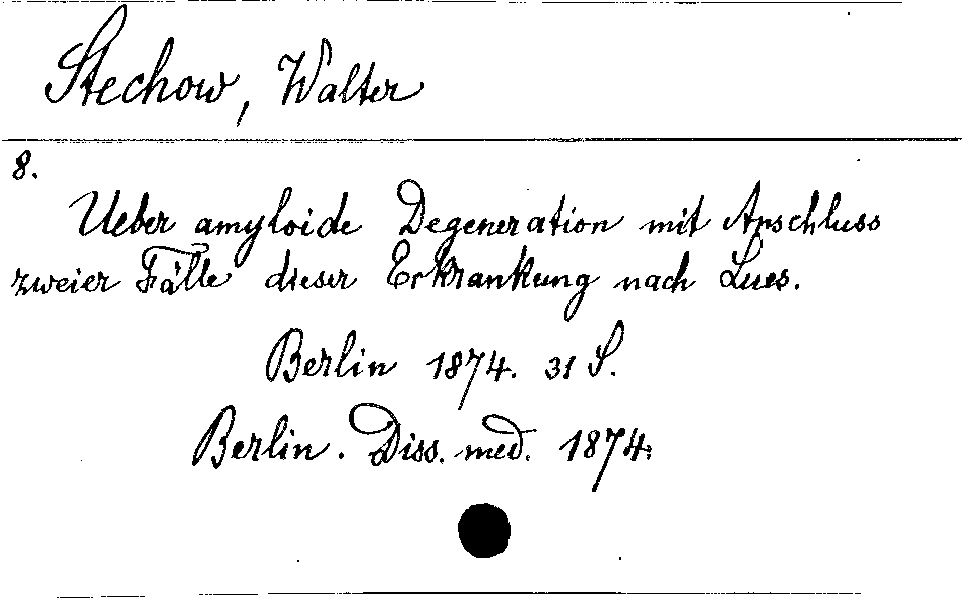 Stechow, Walter
8.
Ueber amyloide Degeneration mit Anschluss
zweier Fälle dieser Erkrankung nach Lues.
Berlin 1874. 31 S.
Berlin. Diss. med. 1874.